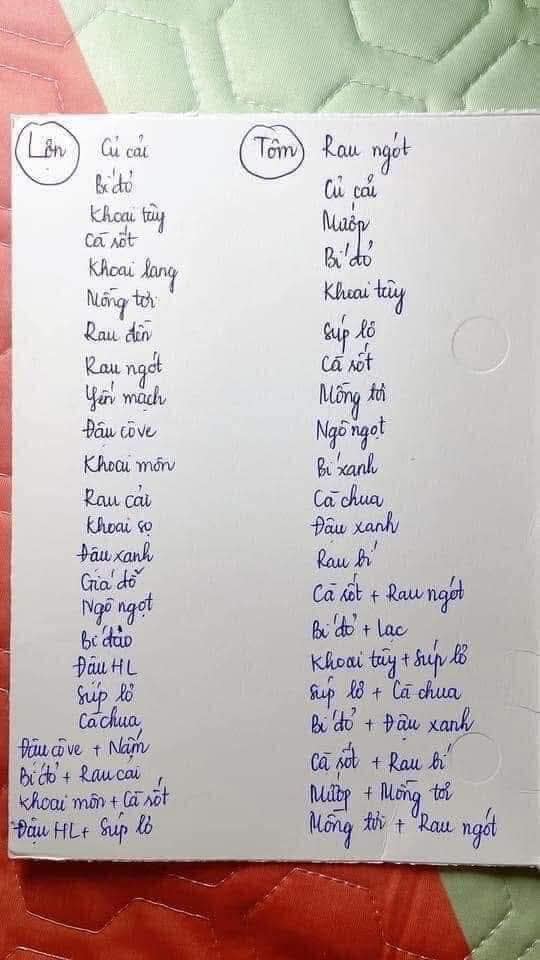 Lợn
Củ cải
Bí đỏ
Khoai tây
Cà rốt
Khoai lang
Mồng tơi
Rau dền
Rau ngót
Yến mạch
Đậu côve
Khoai môn
Rau cải
Khoai sọ
Đậu xanh
Giá đỗ
Ngô ngọt
Bí đao
Đậu HL
Súp lơ
Cà chua
Đậu côve + Nấm
Bí đỏ + Rau cải
Khoai môn + Cà rốt
Đậu HL + Súp lơ
Tôm
Rau ngót
Củ cải
Mướp
Bí đỏ
Khoai tây
Súp lơ
Cà rốt
Mồng tơi
Ngô ngọt
Bí xanh
Cà chua
Đậu xanh
Rau bí
Cà rốt + Rau ngót
Bí đỏ + Lạc
Khoai tây + Súp lơ
Súp lơ + Cà chua
Bí đỏ + Đậu xanh
Cà rốt + Rau bí
Mướp + Mồng tơi
Mồng tơi + Rau ngót